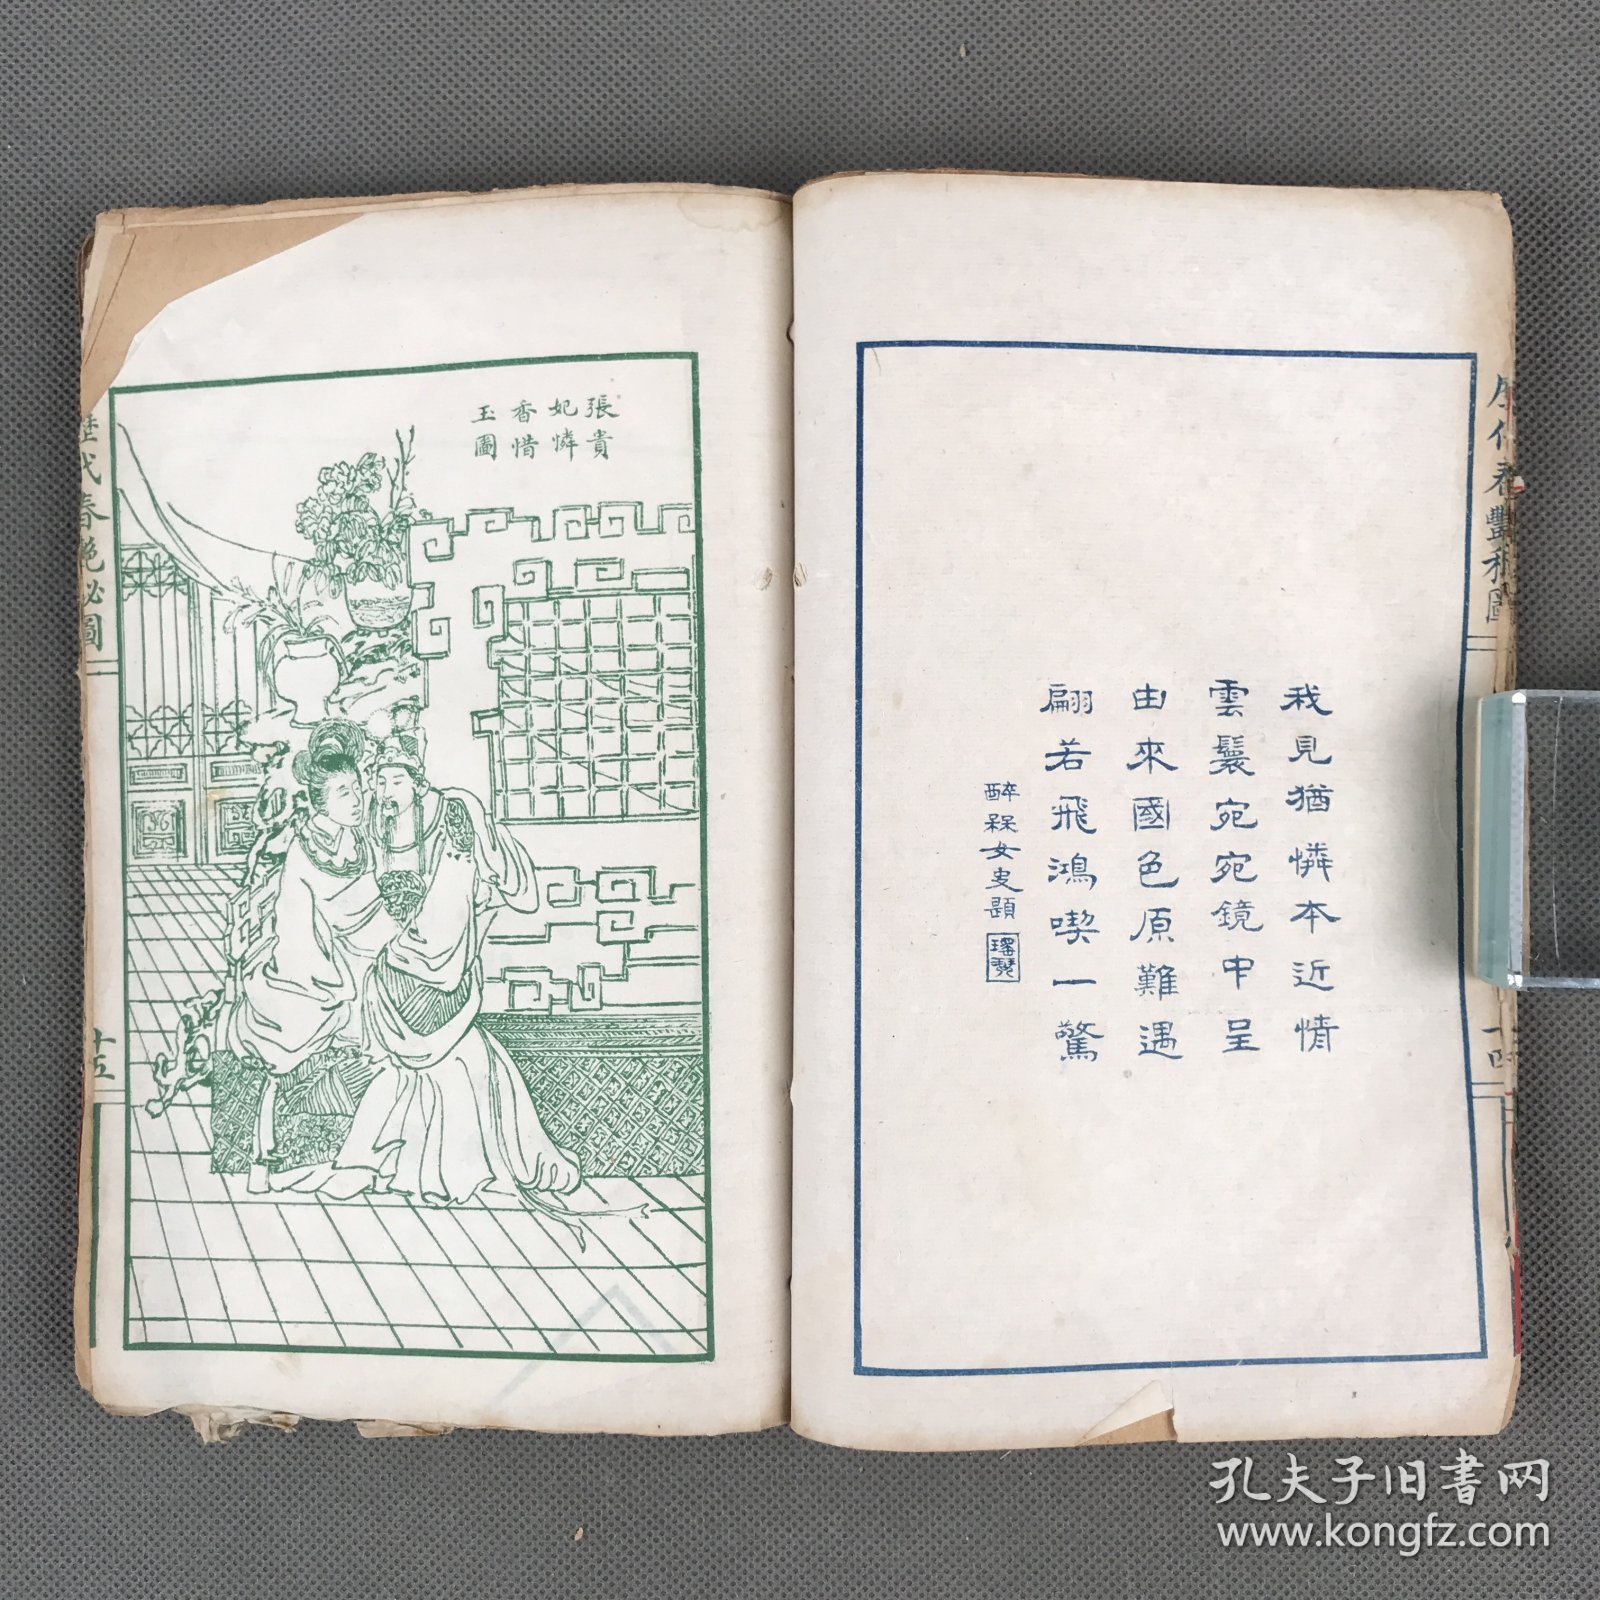 我見猶憐本近情
雲鬟宛宛鏡中呈
由來國色原難遇
翩若飛鴻喫一驚
醉綠女史題
瑤琴
歷代春艷秘圖
十四
張貴
妃憐
香惜
玉圖
歷代春艷必圖
十五
孔夫子旧书网
www.kongfz.com